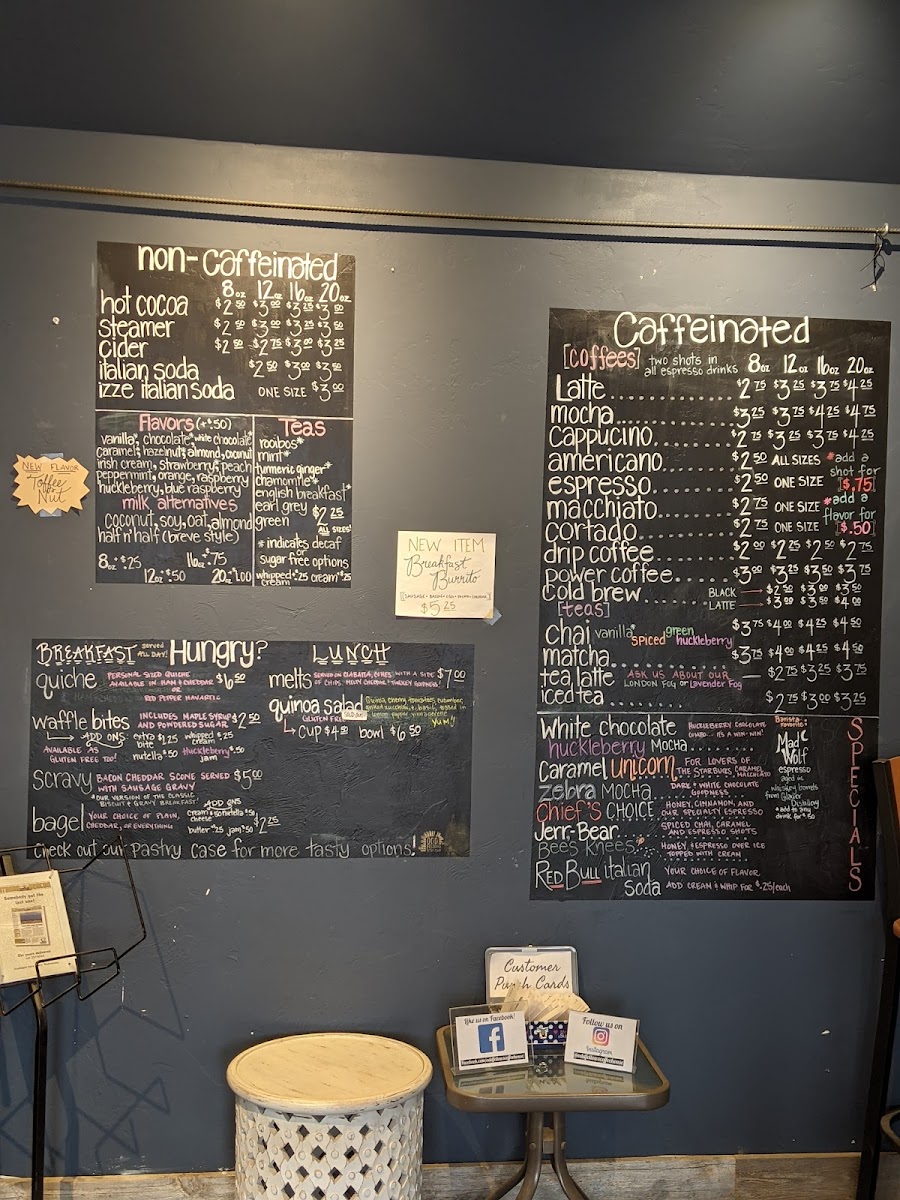 non-caffeinated
8oz 12oz 16oz 20oz
hot cocoa $2.50 $3.00 $3.25 $3.50
steamer $2.50 $3.00 $3.25 $3.50
cider $2.50 $2.75 $3.00 $3.50
italian soda $2.50 $3.00 $3.50
izze italian soda ONE SIZE $3.00
Flavors (+$.50)
vanilla*, chocolate*, white chocolate*
caramel*, hazelnut*, almond, coconut
irish cream, strawberry, peach
peppermint, orange, raspberry
huckleberry, blue raspberry
milk alternatives
coconut, soy, oat, almond
half n' half (breve style)
8oz +$.25 16oz +$.75
12oz +$.50 20oz +$1.00
Teas
rooibos*
mint*
turmeric ginger*
chamomile*
english breakfast*
earl grey
green
$2.25
ALL SIZES!
* indicates decaf
or
sugar free options
whipped cream +$.25 cream +$.25
NEW FLAVOR
Toffee
Nut
NEW ITEM
Breakfast
Burrito
$5.25
BREAKFAST served ALL DAY! Hungry? LUNCH
quiche PERSONAL SIZED QUICHE
AVAILABLE IN HAM & CHEDDAR
OR
RED PEPPER HAVARTI
$6.50
waffle bites INCLUDES MAPLE SYRUP
AND POWDERED SUGAR
$2.50
ADD ONS:
extra bite $1.25
whipped cream $.25
nutella $.50
Huckleberry jam $.50
AVAILABLE AS
GLUTEN FREE TOO!
SCRAVY BACON CHEDDAR SCONE SERVED
WITH SAUSAGE GRAVY
* OUR VERSION OF THE CLASSIC
BISCUIT & GRAVY BREAKFAST
$5.00
bagel YOUR CHOICE OF PLAIN,
CHEDDAR, OR EVERYTHING
ADD ONS
butter $.25 jam $.50
$2.25
melts SERVED ON CIABATTA, COMES WITH A SIDE
OF CHIPS
$7.00
quinoa salad
GLUTEN FREE
yum!
CUP $4.50 bowl $6.50
check out our pastry case for more tasty options!
Caffeinated
[coffees] two shots in
all espresso drinks
8oz 12oz 16oz 20oz
Latte $2.75 $3.25 $3.75 $4.25
mocha $3.25 $3.75 $4.25 $4.75
cappucino $2.75 $3.25 $3.75 $4.25
americano $2.50 ALL SIZES
espresso $2.50 ONE SIZE
macchiato $2.75 ONE SIZE
cortado $2.75 ONE SIZE
*add a
shot for
$.75
*add a
flavor for
$.50
drip coffee $2.00 $2.25 $2.50 $2.75
power coffee $3.00 $3.25 $3.50 $3.75
cold brew BLACK $2.50 $3.00 $3.50
LATTE $3.00 $3.50 $4.00
[teas]
chai vanilla* spiced green huckleberry $3.75 $4.00 $4.25 $4.50
matcha $3.75 $4.00 $4.25 $4.50
tea latte ASK US ABOUT OUR
LONDON FOG or Lavender FOG
$2.75 $3.25 $3.75
iced tea $2.75 $3.00 $3.25
White chocolate
huckleberry Mocha
HUCKLEBERRY CHOCOLATE
COMBO... IT'S A WIN-WIN!
Caramel Unicorn FOR LOVERS OF
THE STARBUX CARAMEL MACCHIATO
zebra MOCHA DARK & WHITE CHOCOLATE
GOODNESS
CHIEF'S CHOICE HONEY, CINNAMON, AND
OUR SPECIALTY ESPRESSO
Jerr-Bear SPICED CHAI, CARAMEL
AND ESPRESSO SHOTS
Bees Knees HONEY & ESPRESSO OVER ICE
TOPPED WITH CREAM
RED BULL italian
soda
YOUR CHOICE OF FLAVOR
ADD CREAM & WHIP FOR $.25/each
Barista
Favorite
Mad
Wolf
espresso
aged in
whiskey barrels
from Glacier
Distilling
* add to any
drink for $.50
SPECIALS
Customer
Punch Cards
Like us on Facebook!
Follow us on
Instagram